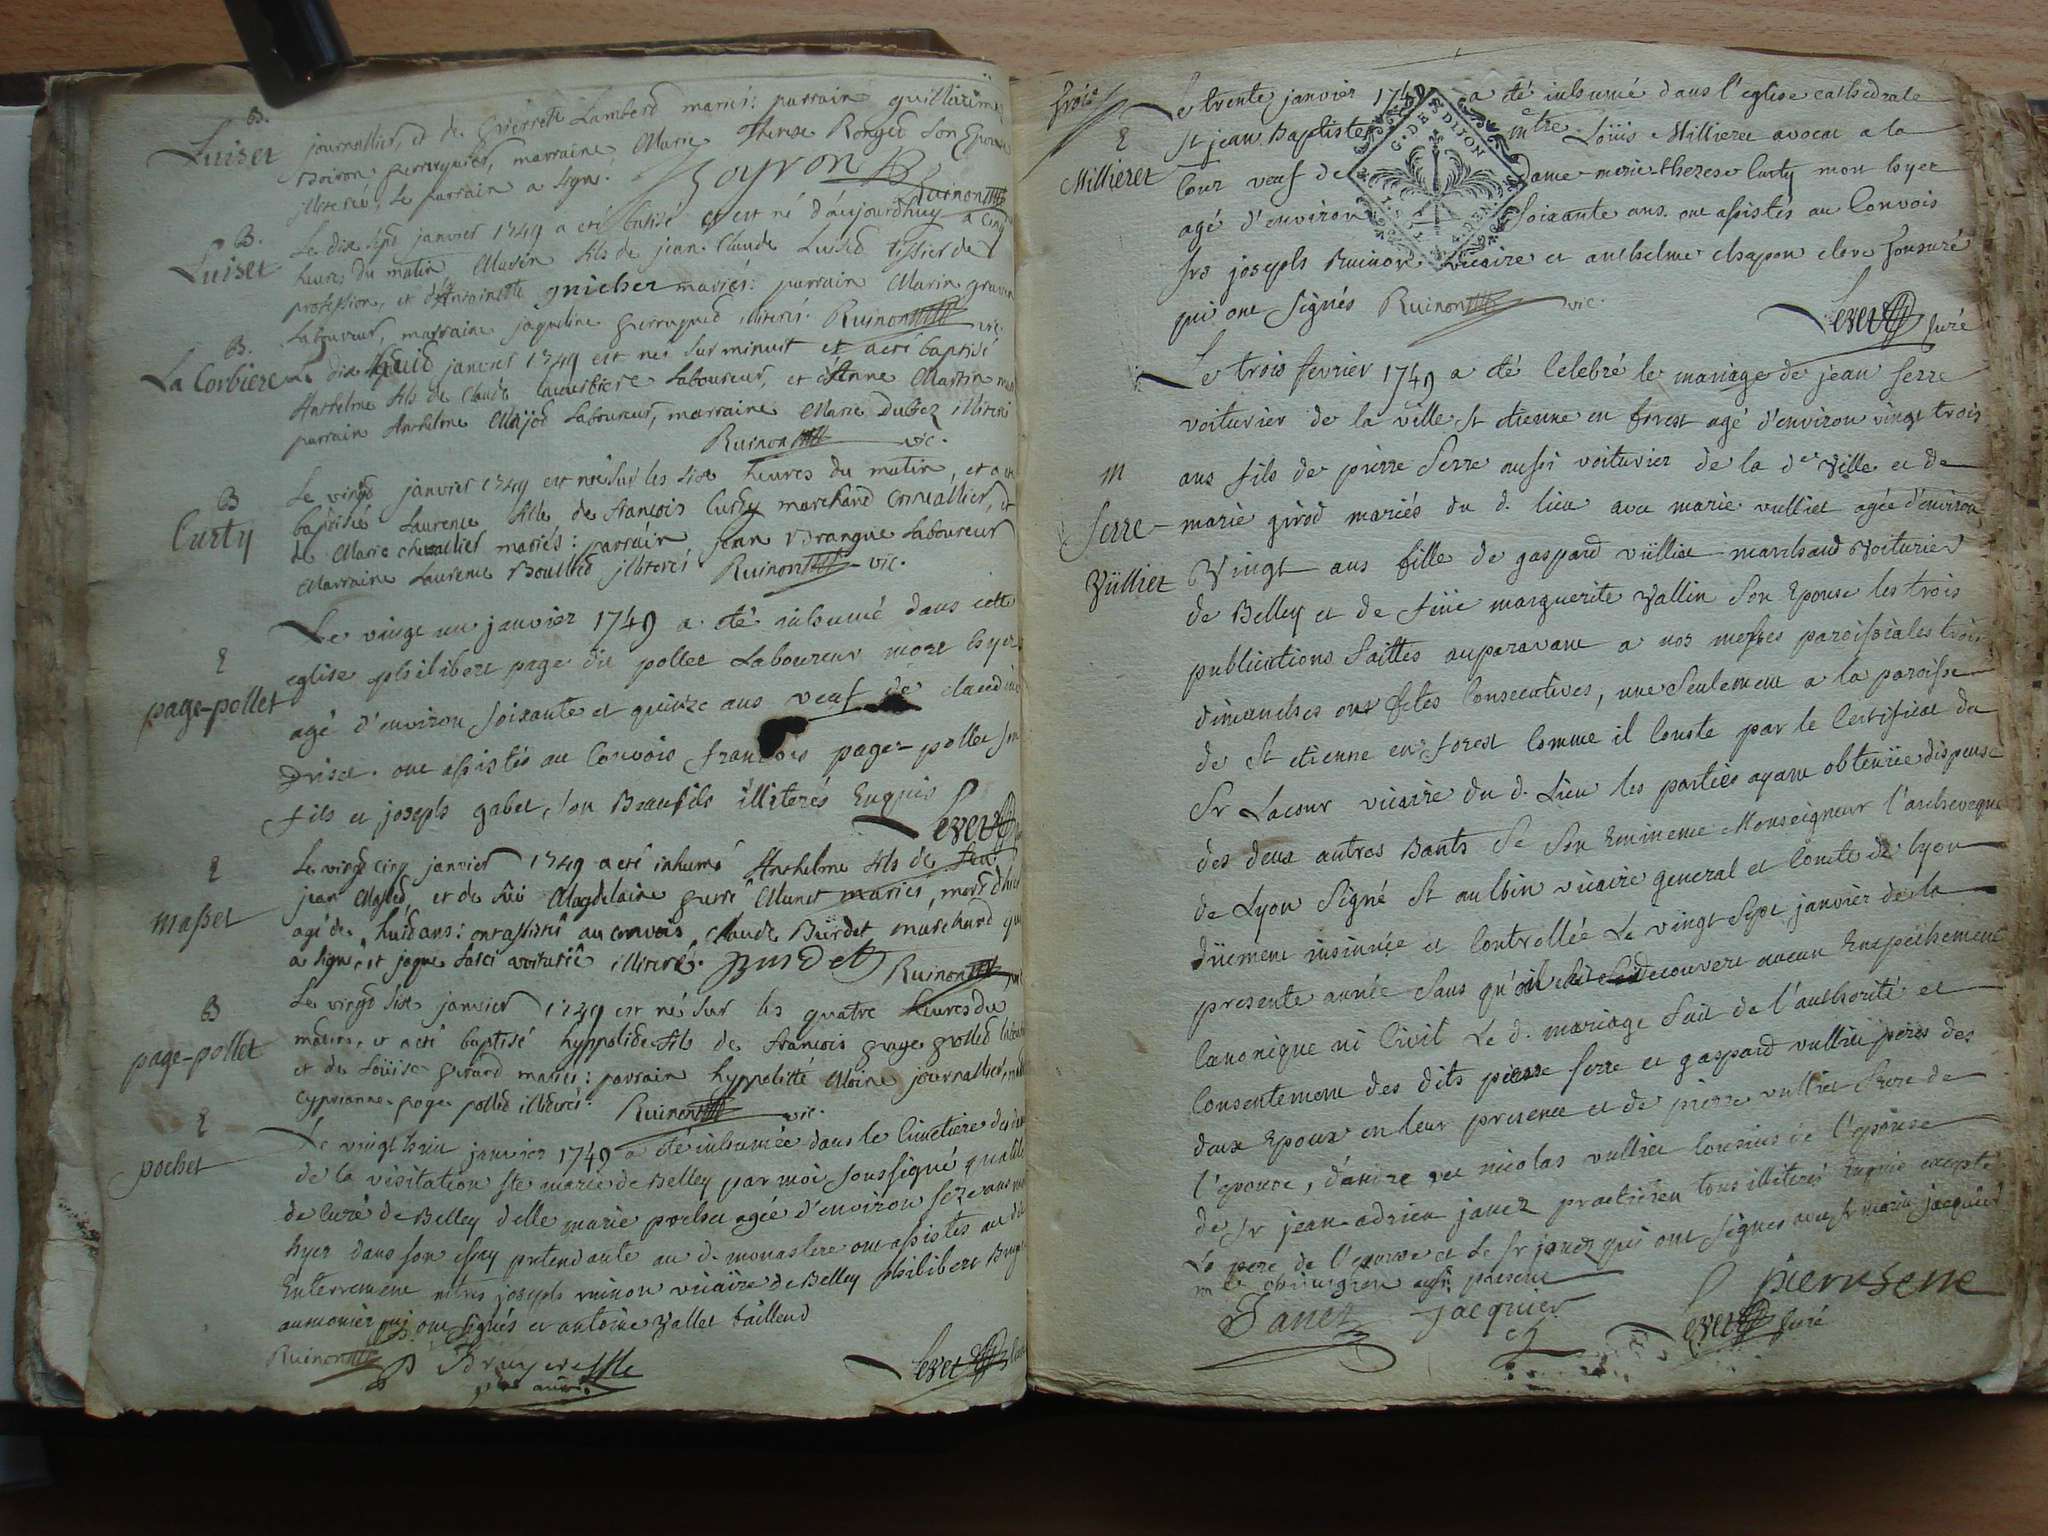 B.
Luiset
journallier, et de pierrette Lambert mariés: parrain guillaume
Boiron perruquier, marraine Marie therese Ronget son Epouse
illiterée, le parrain a signé.
Boyron
Ruinon
B.
Luiset
Le dix sept janvier 1749 a eté batisé et est né d'aujourd'huy a cinq
heures du matin, Marin fils de jean Claude Luiset tissier de
profession, et d'Antoinette gnicher mariés: parrain Marin
Laboureur, marraine jaqueline perruquet illiterés. Ruinon vic.
B.
La Corbiere
Le dix huit janvier 1749 est né sur minuit et a eté baptisé
Anthelme fils de Claude Lacorbiere Laboureur, et d'Anne Martin
parrain Anthelme Majod Laboureur, marraine Marie Dubez illiterés
Ruinon vic.
B
Curty
Le vingt janvier 1749 est née sur les six heures du matin, et a
baptisée Laurence fille de francois Curty marchand et
de Marie chevallier mariés: parrain jean Laboureur
Marraine Laurence Boullid illiterés Ruinon vic.
E
page-pollet
Le vingt un janvier 1749 a eté inhumé dans cette
eglise philibert page dit pollet Laboureur mort hyer
agé d'environ soixante et quinze ans veuf de claudine
ont assistés au Convois francois page-pollet son
fils et joseph gabet, son Beaufils illiterés Enquis
Levet
E
masset
Le vingt cinq janvier 1749 a eté inhumé Anthelme fils de feu
jean Masset, et de Magdelaine mariés, mort
agé de huit ans: ont assisté au convois claude Burdet marchand qui
a signé, et illiteré. Burdet Ruinon
B
page-pollet
Le vingt six janvier 1749 est né sur les quatre heures du
matin, et a eté baptisé hyppolite fils de francois page pollet
et de Loüise girard mariés: parrain hyppolitte Moine journallier,
Cyprianne page pollet illiterés. Ruinon vic.
E
pochet
Le vingt huit janvier 1749 a eté inhumée dans le Cimetiere des
de la visitation ste marie de Belley par moi soussigné
de Curé de Belley delle marie pochet agée d'environ seze ans
hyer dans son essay pretendante au d. monastere ont assistés au
Enterrement mtres joseph ruinon vicaire de Belley philibert
aumonier qui ont signés et antoine Vallet tailleur
Ruinon Bruyere
Levet
trois
E
Millieret
Le trente janvier 1749 a eté inhumé dans l'eglise cathedrale
St jean Baptiste mtre Loüis Millieret avocat a la
Cour veuf de Dame marie therese Curty mort hyer
agé d'environ soixante ans. ont assistés au Convois
srs joseph Ruinon vicaire et anthelme chapon clerc tonsuré
qui ont signés Ruinon vic.
Levet curé
G. DE DIJON
m
Serre
Vüilliet
Le trois fevrier 1749 a eté Celebré le mariage de jean serre
voiturier de la ville st etienne en forest agé d'environ vingt trois
ans fils de pierre serre aussi voiturier de la de ville et de
marie girod mariés du d. lieu avec marie vulliet agée d'environ
Vingt ans fille de gaspard vülliet marchand Voiturier
de Belley et de feüe marguerite Vallin son Epouse les trois
publications faittes auparavant a nos messes paroissiales trois
dimanches ou fetes Consecutives, une seulement a la paroisse
de st etienne en forest Comme il Conste par le Certificat du
Sr Lacour vicaire du d. Lieu les parties ayant obtenüe dispense
des deux autres Bants de son Eminence Monseigneur l'archeveque
de Lyon signé st aulbin vicaire general et Comte de lyon
düement insinuée et Controllée Le vingt sept janvier de la
presente année sans qu'il decouvert aucun Empechement
Canonique ni Civil Le d. mariage fait de l'authorité et
Consentement des dits pierre serre et gaspard vulliet peres des
deux Epoux en leur presence et de pierre vulliet frere de
l'epouse, d'andre et nicolas vulliet Cousins de l'epouse
de sr jean-adrien janez practicien tous illiterés Enquis excepté
Le pere de l'epoux et Le sr janez qui ont signés avec sr marin jacquier
me chirurgien aussi present
Janez Jacquier pierre serre
Levet curé